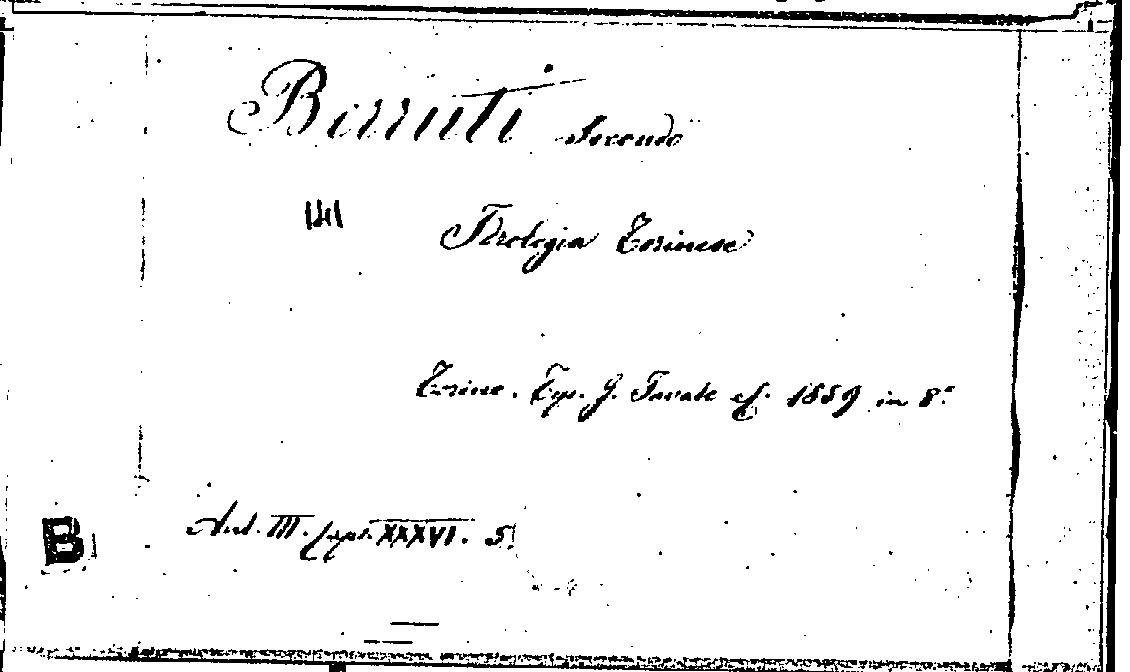 Birruti Secondo
Idrologia Torinese
Torino. Tip. G. Favale e C. 1889 in 8.°
Ant. III. XXXVI. 5.
B